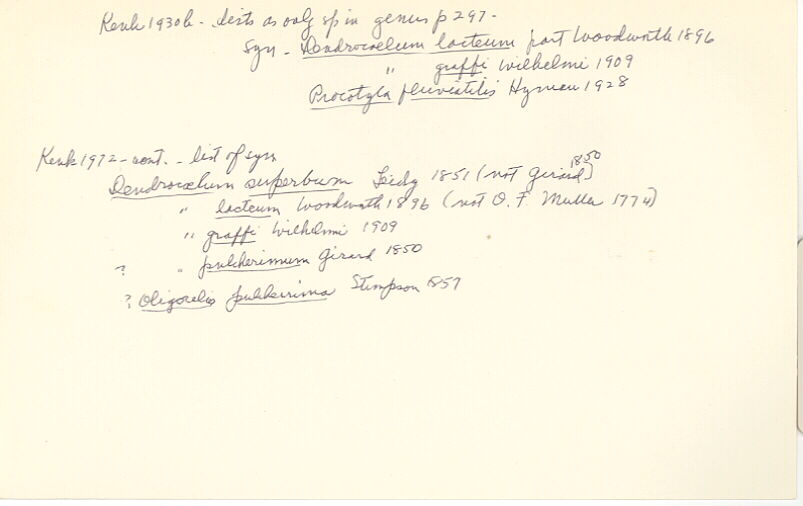 Kenk 1930b - lists as only sp in genus p 297.
Syn - Dendrocoelum lacteum part Woodworth 1896
" graffi Wilhelmi 1909
Procotyla fluviatilis Hyman 1928
Kenk 1972 - cont. - list of syn
Dendrocoelum superbum Leidy 1851 (not Girard 1850)
" lacteum Woodworth 1896 (not O. F. Muller 1774)
" graffi Wilhelmi 1909
? " pulcherimum Girard 1850
? Oligocelis pulcherrima Stimpson 1857